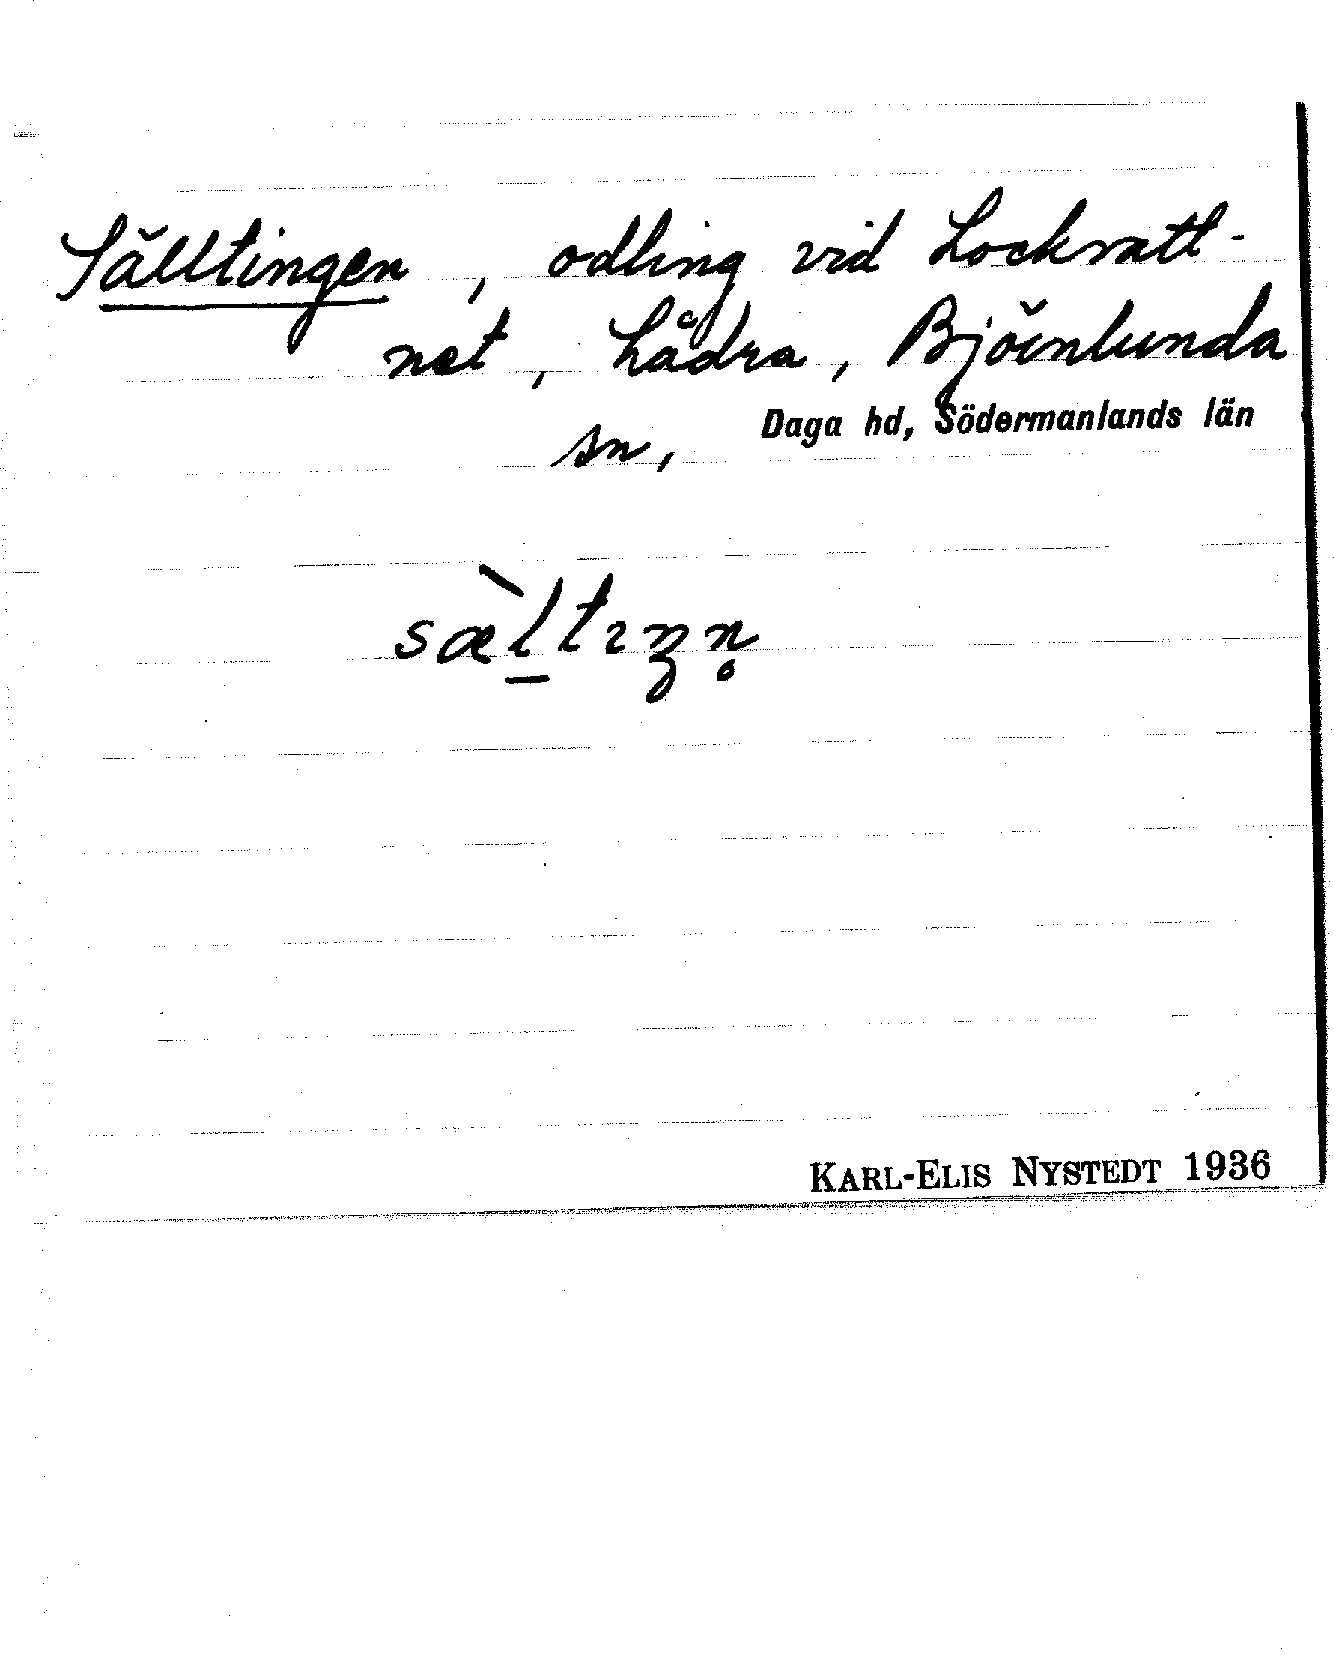 Sälltingen, odling vid Lockvatt-
net, Lådra, Björnlunda
sn, Daga hd, Södermanlands län
sæ̀ltıŋn̥
KARL-ELIS NYSTEDT 1936